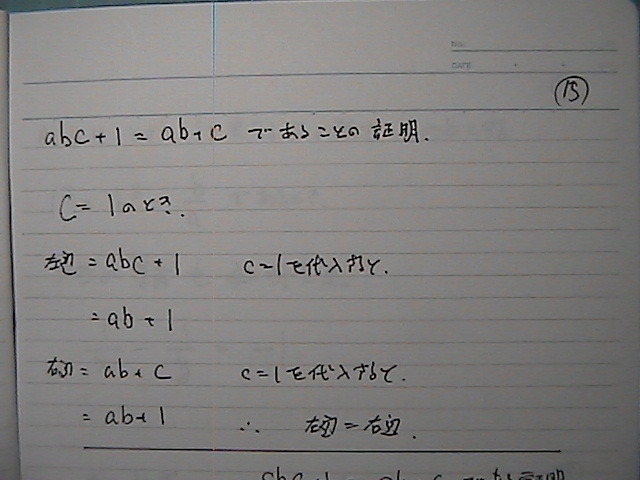 No.
DATE
15
abc+1 = ab+c であることの証明.
C= 1のとき.
左辺 = abc + 1 c=1を代入すると.
= ab + 1
右辺 = ab + c c=1を代入すると.
= ab+1 ∴ 左辺=右辺.